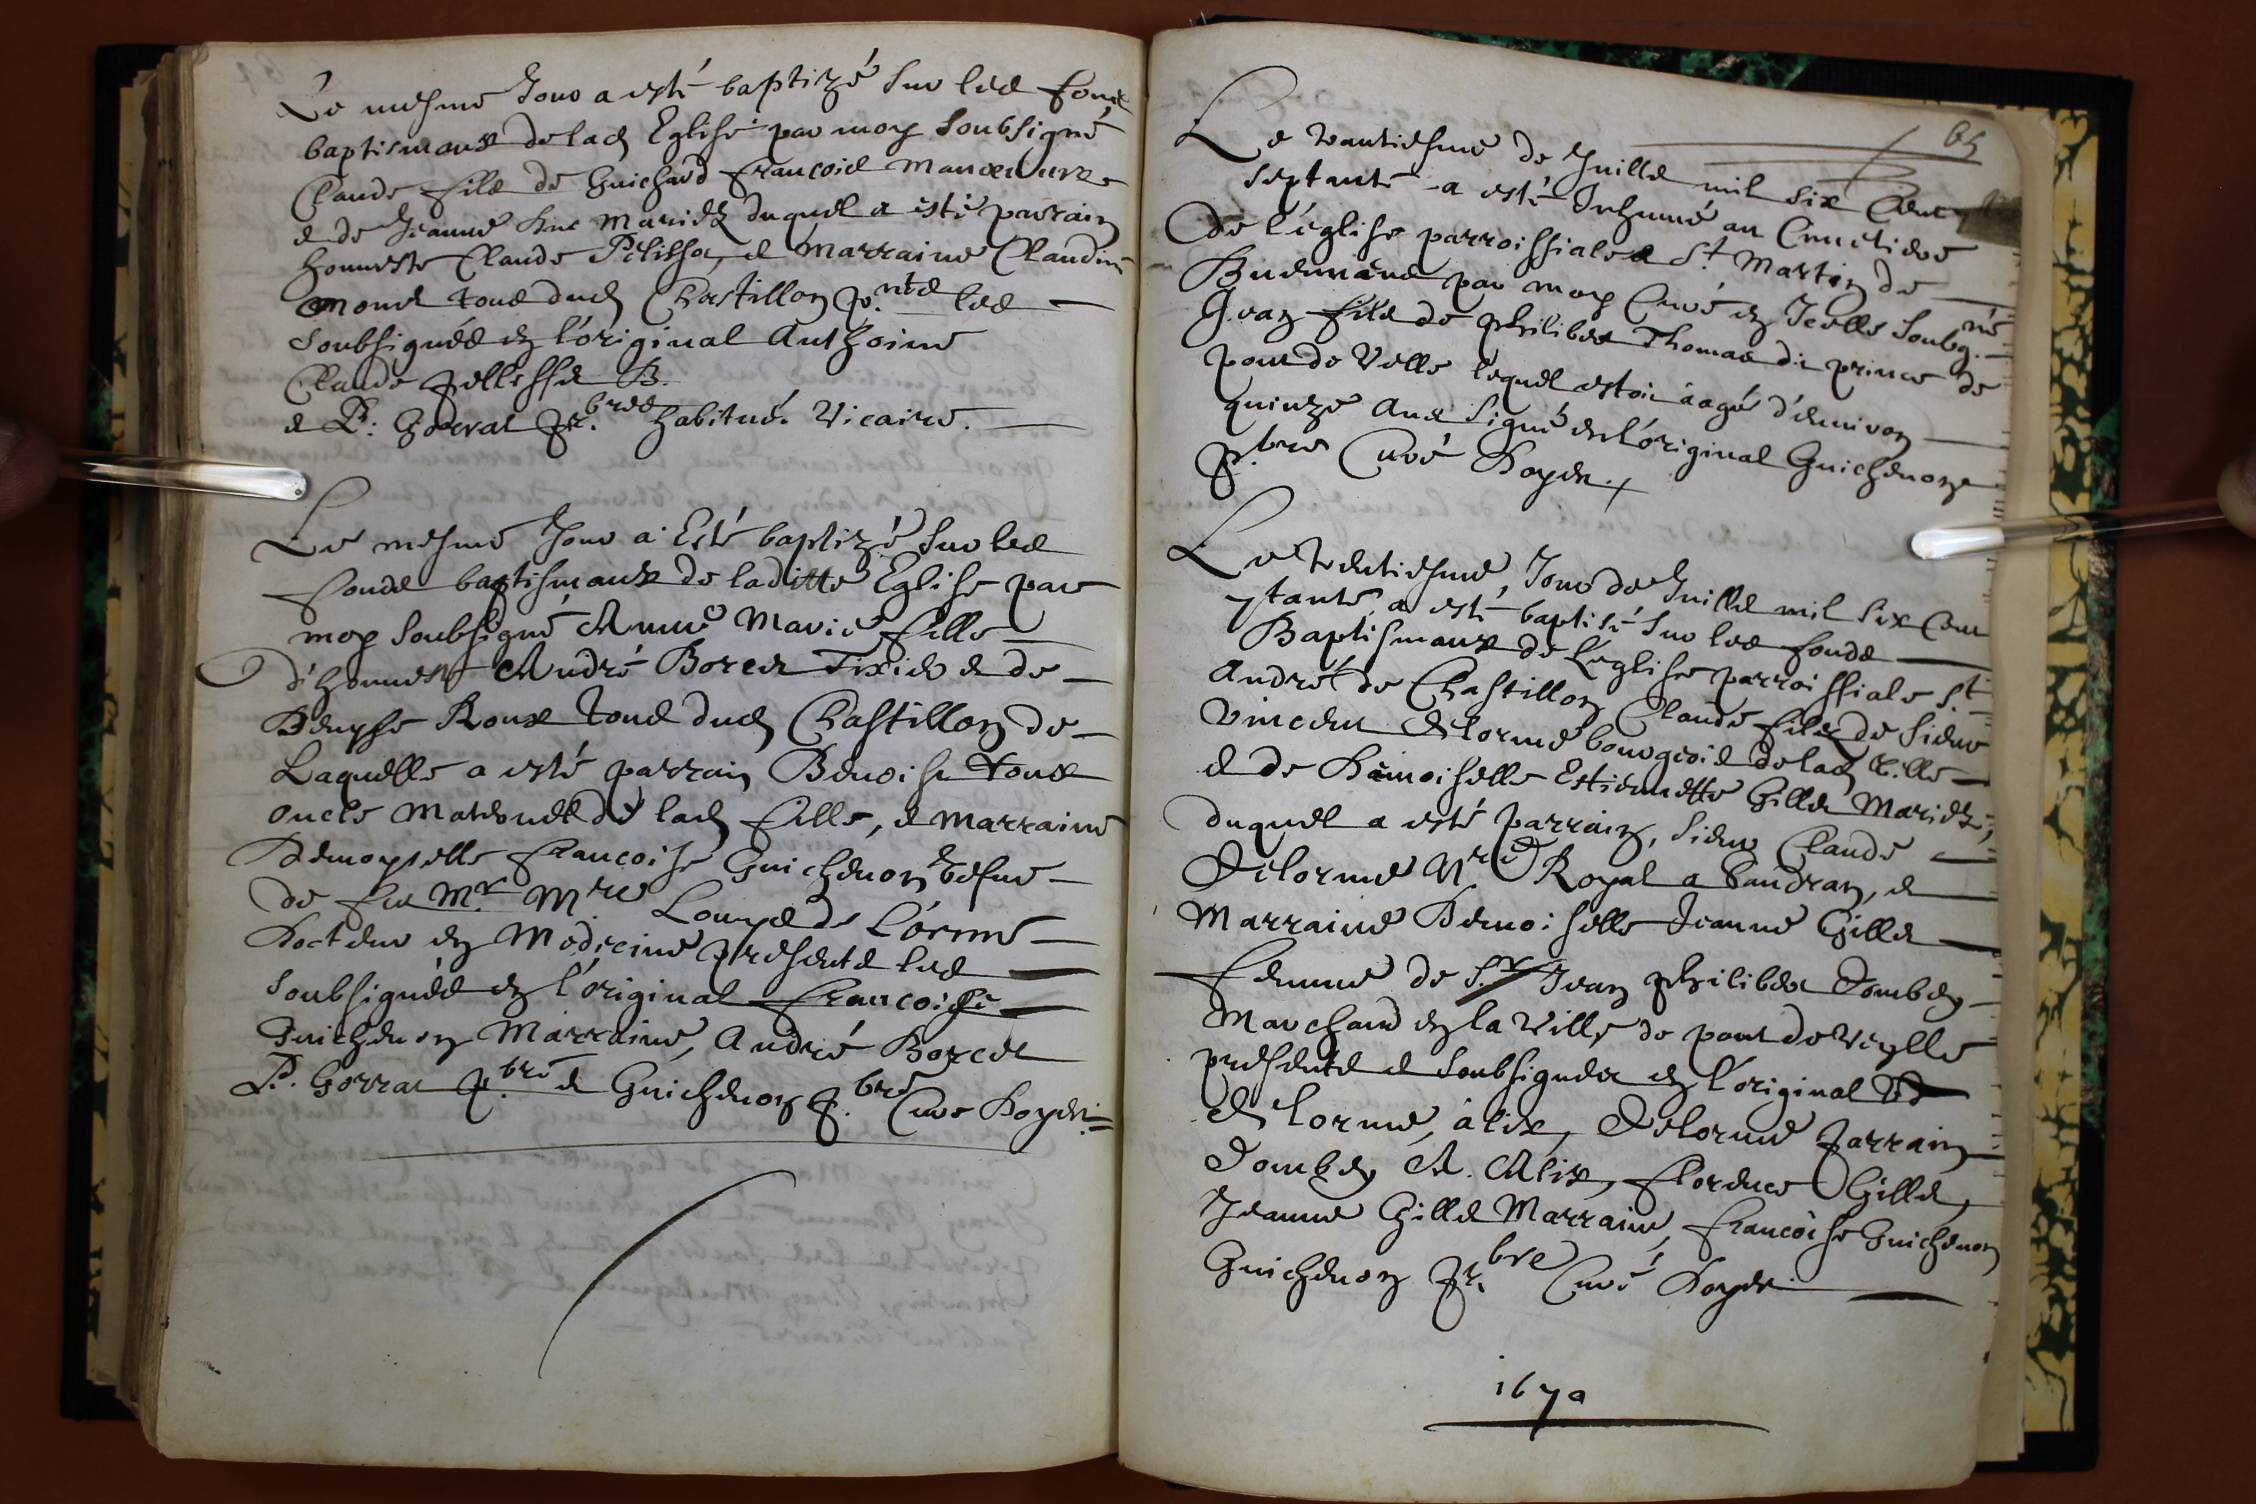 Le mesme Jour a esté baptizé sur les fons
baptismaux de lad Eglise par moy soubsigné
Claude fils de Guichard françois
e de Jeanne Luc Mariez duquel a esté parrain
honneste Claude Pelisson, e Marraine Claudine
tous dud Chastillon p.ntes les
soubsignés en l'original Anthoine
Claude pelisse B.
e P. Gorrat p.bres habitué. Vicaire.
Le mesme Jour a Esté baptizé sur les
fonds baptismaux de laditte Eglise par
moy soubsigné Anne Marie fille
d'honnest André Borcet Tixier e de
Denyse Roux tous dud Chastillon de
Laquelle a esté parrain Benoist Roux
oncle Maternel de lad fille, e Marraine
Demoyselle francoise Guichenon vefve
de feu Mr. Mre Louys de l'orme
Docteur en Medecine presente les
soubsignés en l'original francoise
Guichenon Marraine, André Borcet
P. Gorrat p.bre e Guichenon p.bre Curé Doyen
65
Le trantiesme de Juillet mil six Cent
septante a esté Inhumé au Cimetiere
de l'église parroissiale St. Martin de
Buenans par moy Curé en Icelle soubsig.né
Jean fils de philibert Thomas dit prince de
pont de Velle lequel estoit aagé d'environ
quinze ans signé en l'original Guichenon
p.bre Curé Doyen.
Le trentiesme, Jour de Juillet mil six Cent
7tante, a esté baptisé sur les fonds
Baptismaux de l'eglise parroissiale St.
André de Chastillon Claude fils de sieur
Vincent Delorme bourgeois de lad ville
e de Damoiselle Estiennette Gillet Mariez,
duquel a esté parrain, sieur Claude
Delorme Nre Royal a Sandran, e
Marraine Demoiselle Jeanne Gillet
femme de S.r Jean philibert Dombey
Marchand en la Ville de pont de Veylle
presente e soubsignés en l'original V
Delorme, alix, Delorme parrain
Dombey A. Alix, florence Gillet,
Jeanne Gillet Marraine, francoise Guichenon
Guichenon p.bre Curé Doyen
1670